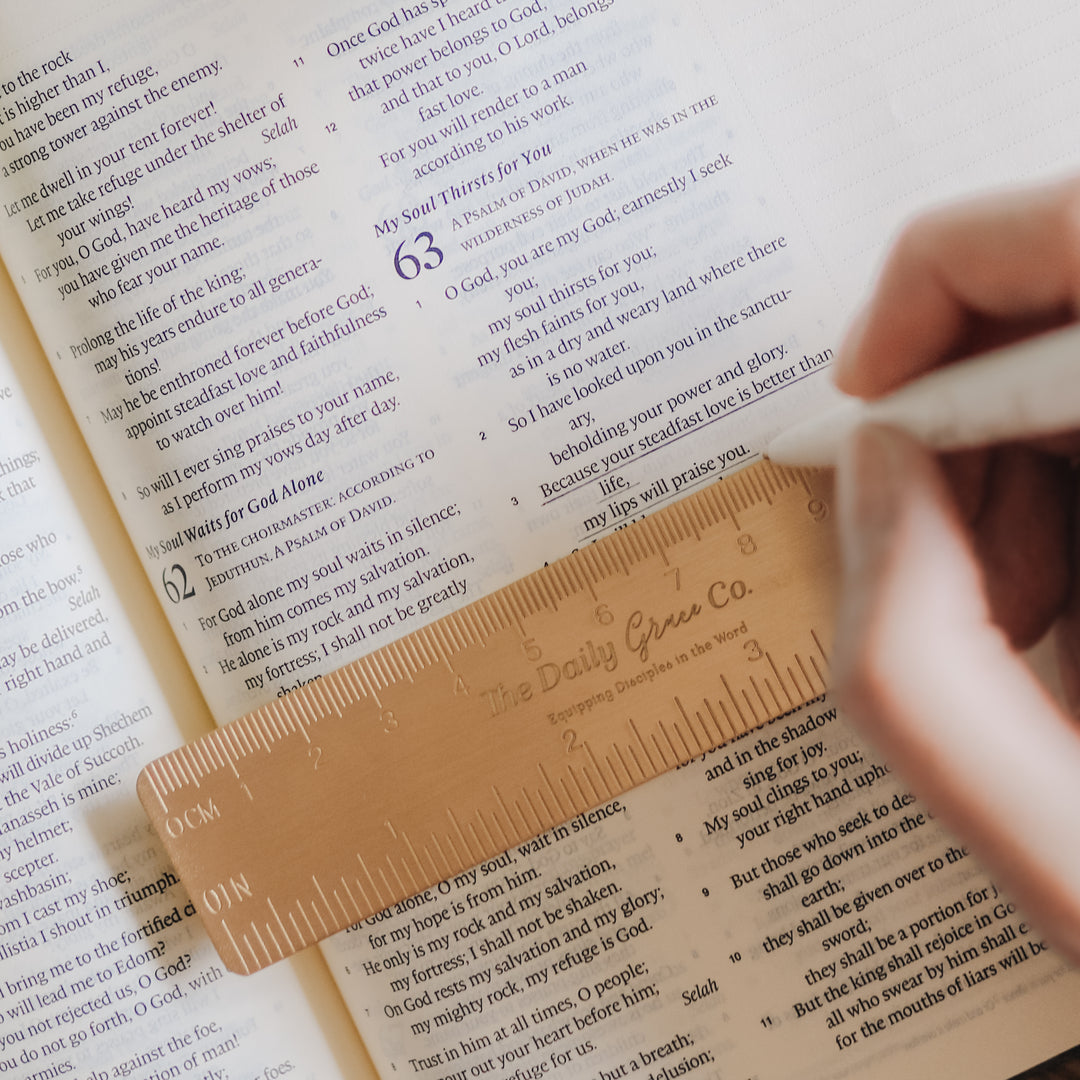 hings,
k that
ose who
om the bow.⁵
Selah
ay be delivered,
right hand and
s holiness:⁶
will divide up Shechem
the Vale of Succoth.
anasseh is mine;
y helmet;
scepter.
ashbasin;
m I cast my shoe;
listia I shout in triumph.
l bring me to the fortified ci
o will lead me to Edom?
you not rejected us, O God?
ou do not go forth, O God, with
armies.
elp against the foe,
ation of man!
foes.
to the rock
t is higher than I,
ou have been my refuge,
a strong tower against the enemy.
Let me dwell in your tent forever!
Let me take refuge under the shelter of
your wings!
Selah
5 For you, O God, have heard my vows;
you have given me the heritage of those
who fear your name.
6 Prolong the life of the king;
may his years endure to all genera-
tions!
7 May he be enthroned forever before God;
appoint steadfast love and faithfulness
to watch over him!
8 So will I ever sing praises to your name,
as I perform my vows day after day.
My Soul Waits for God Alone
62 TO THE CHOIRMASTER: ACCORDING TO
JEDUTHUN. A PSALM OF DAVID.
1 For God alone my soul waits in silence;
from him comes my salvation.
2 He alone is my rock and my salvation,
my fortress; I shall not be greatly
shaken.
for God alone, O my soul, wait in silence,
for my hope is from him.
6 He only is my rock and my salvation,
my fortress; I shall not be shaken.
7 On God rests my salvation and my glory;
my mighty rock, my refuge is God.
8 Trust in him at all times, O people;
our out your heart before him;
efuge for us.
Selah
but a breath;
delusion;
11 Once God has sp
twice have I heard
that power belongs to God,
12 and that to you, O Lord, belongs
fast love.
For you will render to a man
according to his work.
My Soul Thirsts for You
63 A PSALM OF DAVID, WHEN HE WAS IN THE
WILDERNESS OF JUDAH.
1 O God, you are my God; earnestly I seek
you;
my soul thirsts for you;
my flesh faints for you,
as in a dry and weary land where there
is no water.
2 So I have looked upon you in the sanctu-
ary,
beholding your power and glory.
3 Because your steadfast love is better than
life,
my lips will praise you.
for you have been my
and in the shadow
sing for joy.
8 My soul clings to you;
your right hand uph
9 But those who seek to des
shall go down into the
earth;
10 they shall be given over to the
sword;
they shall be a portion for j
11 But the king shall rejoice in Go
all who swear by him shall e
for the mouths of liars will be
0CM 1 2 3 4 5 6 7 8 9
The Daily Grace Co.
Equipping Disciples in the Word
0IN 2 3